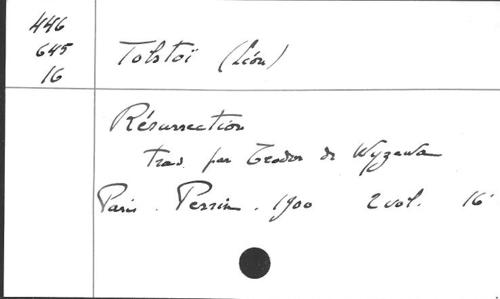 446
645
16
Tolstoï (Léon)
Résurrection
trad. par Teodor de Wyzewa
Paris . Perrin . 1900 2 vol. 16°